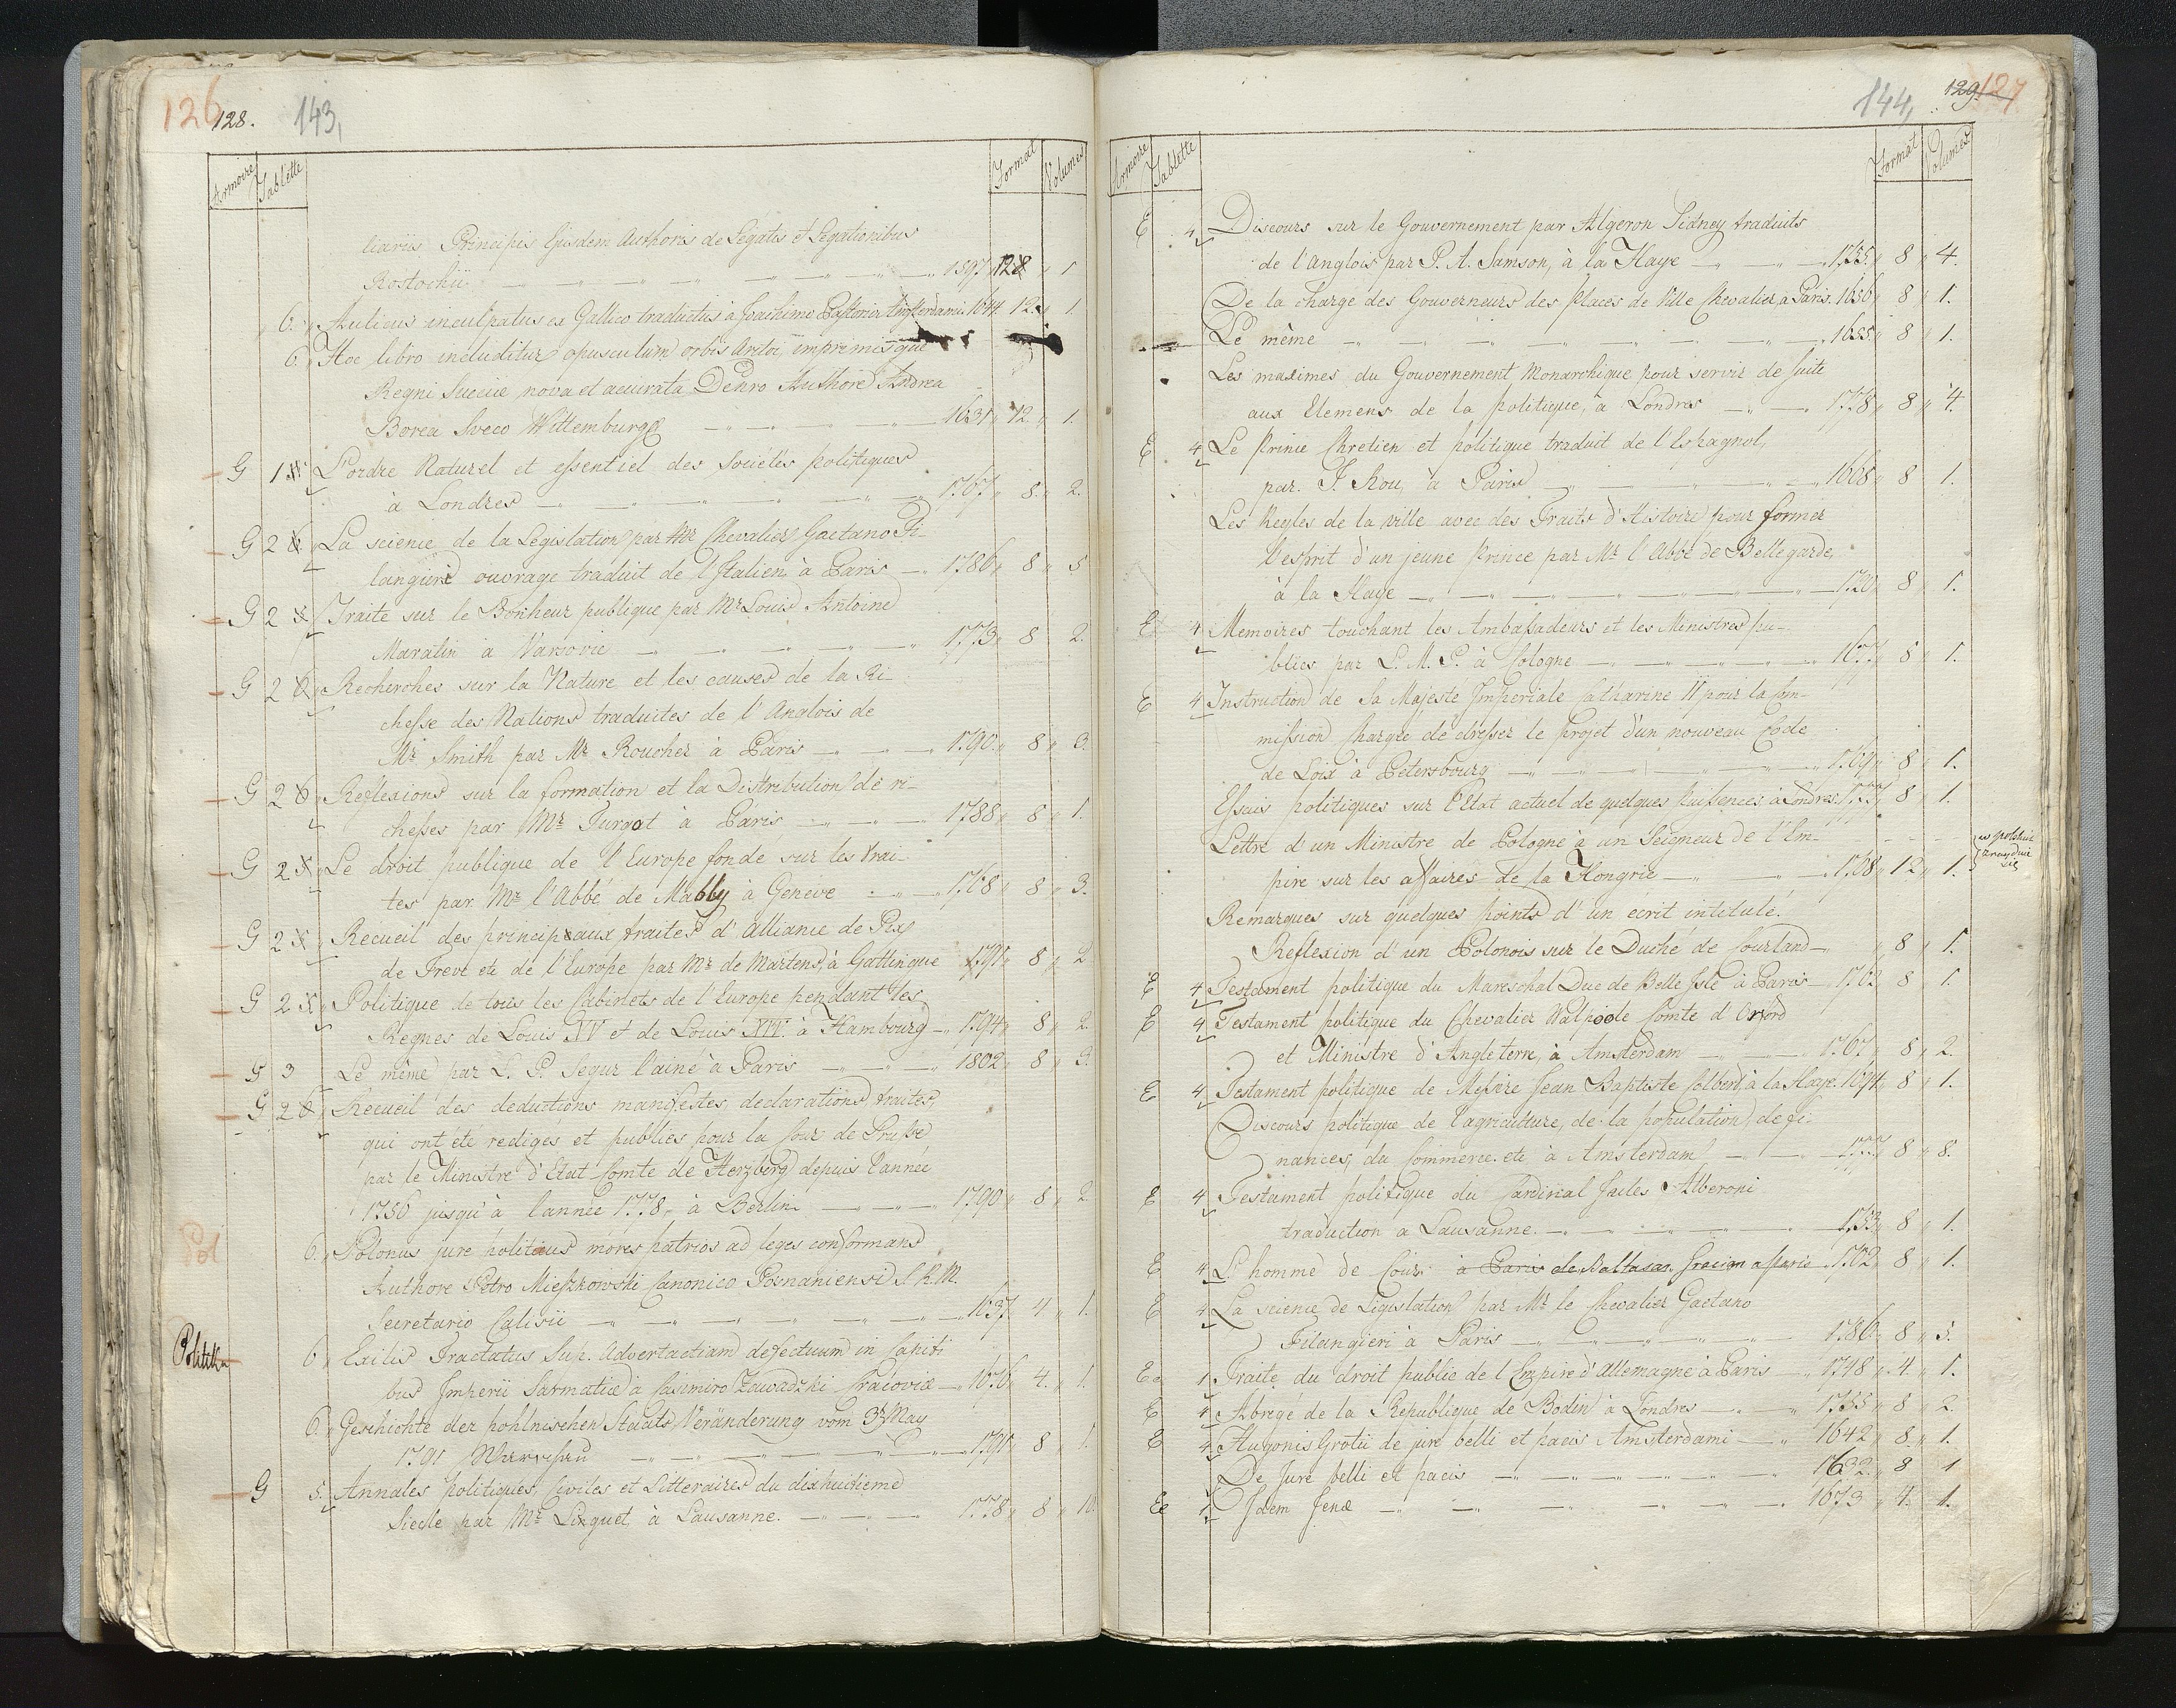 126 128. 143,
Armoire Tablette Format Volumes
liariis Principis Ejusdem Authoris de Legatis et Legationibus
Rostochii 1597 12 1
6. Aulicus inculpatus ex Gallico traductus à Joachimo Pastorio Amsterdami 1644 12 1.
6. Hoc libro includitur opusculum orbis Arctoi imprimisque
Regni Sueciæ nova et accurata Authore Andrea
Borea Sveco Wittemburgæ 1631 12 1.
G 1 L'ordre Naturel et essentiel des Sociétés politiques
à Londres 1767 8 2.
G 2 6 La science de la Législation par Mr Chevalier Gaetano Fi-
langieri ouvrage traduit de l'Italien à Paris 1786 8 5
G 2 Traité sur le Bonheur publique par Mr Louis Antoine
Maratin à Varsovie 1773 8 2.
G 2 6 Recherches sur la Nature et les causes de la Ri-
chesse des Nations traduites de l'Anglois de
Mr Smith par Mr Roucher à Paris 1790. 8 3.
G 2 6 Reflexions sur la formation et la Distribution de ri-
chesses par Mr Turgot à Paris 1788 8 1.
G 2 Le droit publique de l'Europe fondé sur les trai-
tes par Mr l'Abbé de Mably à Genève 1768 8 3.
G 2 Recueil des principaux traités d'alliance de Pex
de Treve etc de l'Europe par Mr de Martens, à Gattingue 1791 8 2
G 2 Politique de tous les Cabinets de l'Europe pendant les
Regnes de Louis XV et de Louis XVI. à Hambourg 1794 8 2.
G 3 Le même par L. P. Segur l'ainé à Paris 1802 8 3.
G 2 6 Recueil des deductions manifestes declarations traités,
qui ont été rediges et publies pour la Cour de Prusse
par le Ministre d'Etat Comte de Herzberg depuis l'année
1756 jusqu'à l'année 1778, à Berlin 1790 8 2
Pol 6. Polonus jure politius mores patrios ad leges conformans
Authore Petro Mieszkowski Canonico Posnaniensi S. R. M.
Secretario Calisii 1637 4 1.
Politika 6 Exilis Tractatus Sup. Advertactiam defectuum in Capiti
bus Imperii Sarmatiæ à Casimiro Zawadzki Cracoviæ 1676 4. 1.
6. Geschichte der pohlnischen Staats Veränderung vom 3ten May
1791 Warschau 1791 8 1.
G 5. Annales politiques, civiles et Litteraires du dixhuitieme
Siecle par Mr. Linguet à Lausanne. 1778 8 10.
144, 129. 127
Armoire Tablette Format Volumes
E 4 Discours sur le Gouvernement par Algeron Sidney traduits
de l'anglois par P. A. Samson, à la Haye 1755. 8 4.
De la Charge des Gouverneurs des places de Ville Chevalier, à Paris. 1656 8 1.
Le même 1655. 8 1.
Les maximes du Gouvernement Monarchique pour servir de suite
aux Elemens de la politique, à Londres 1778 8 4.
E 4 Le Prince Chretien et politique traduit de l'Espagnol,
par. J. Rou, à Paris 1668 8 1.
Les Regles de la ville avec des Traits d'Histoire pour former
l'esprit d'un jeune Prince par Mr l'Abbé de Bellegarde,
à la Haye 1720 8 1.
E 4 Memoires touchant les Ambassadeurs et les Ministres pu-
blics par L. M. P. à Cologne 1677 8 1.
E 4 Instruction de Sa Majeste Imperiale Catharine II pour la Com-
mission chargée de dresser le projet d'un nouveau Code
de Loix à Petersbourg 1769 8 1.
Essais politiques sur l'Etat actuel de quelques Puissences, à Londres. 1777 8 1.
Lettre d'un Ministre de Pologne à un Seigneur de l'Em-
pire sur les affaires de la Hongrie 1708 12 1.
Remarques sur quelques points d'un ecrit intitulé.
Reflexion d'un Polonois sur le Duché de Courland 8 1.
E 4 Testament politique du Mareschal Duc de Belle Isle à Paris 1762 8 1.
E 4 Testament politique du Chevalier Walpoole Comte d'Orford
et Ministre d'Angleterre, à Amsterdam 1767 8 2.
E 4 Testament politique de Messire Jean Baptiste Colbert, à la Haye. 1694 8 1.
Discours politique de l'agriculture, de la population, de fi-
nances, du Commerce. etc à Amsterdam 8 8.
E 4 Testament politique du Cardinal Jules Alberoni
traduction a Lausanne. 1753 8 1.
E 4 L'homme de Cour à Paris de Baltasar Gracian a Paris 1702 8 1.
E 4 La science de Législation par Mr le Chevalier Gaetano
Filangieri à Paris 1786 8 5.
Ee 1. Traité du droit public de l'Empire d'Allemagne à Paris 1748 4 1.
E 4 Abregé de la Republique de Bodin à Londres 1755 8 2.
E 4 Hugonis Grotii de jure belli et pacis Amsterdami 1642 8 1.
De Jure belli et pacis 1632. 8 1
Ee 1 Idem Jenæ 1673 4. 1.